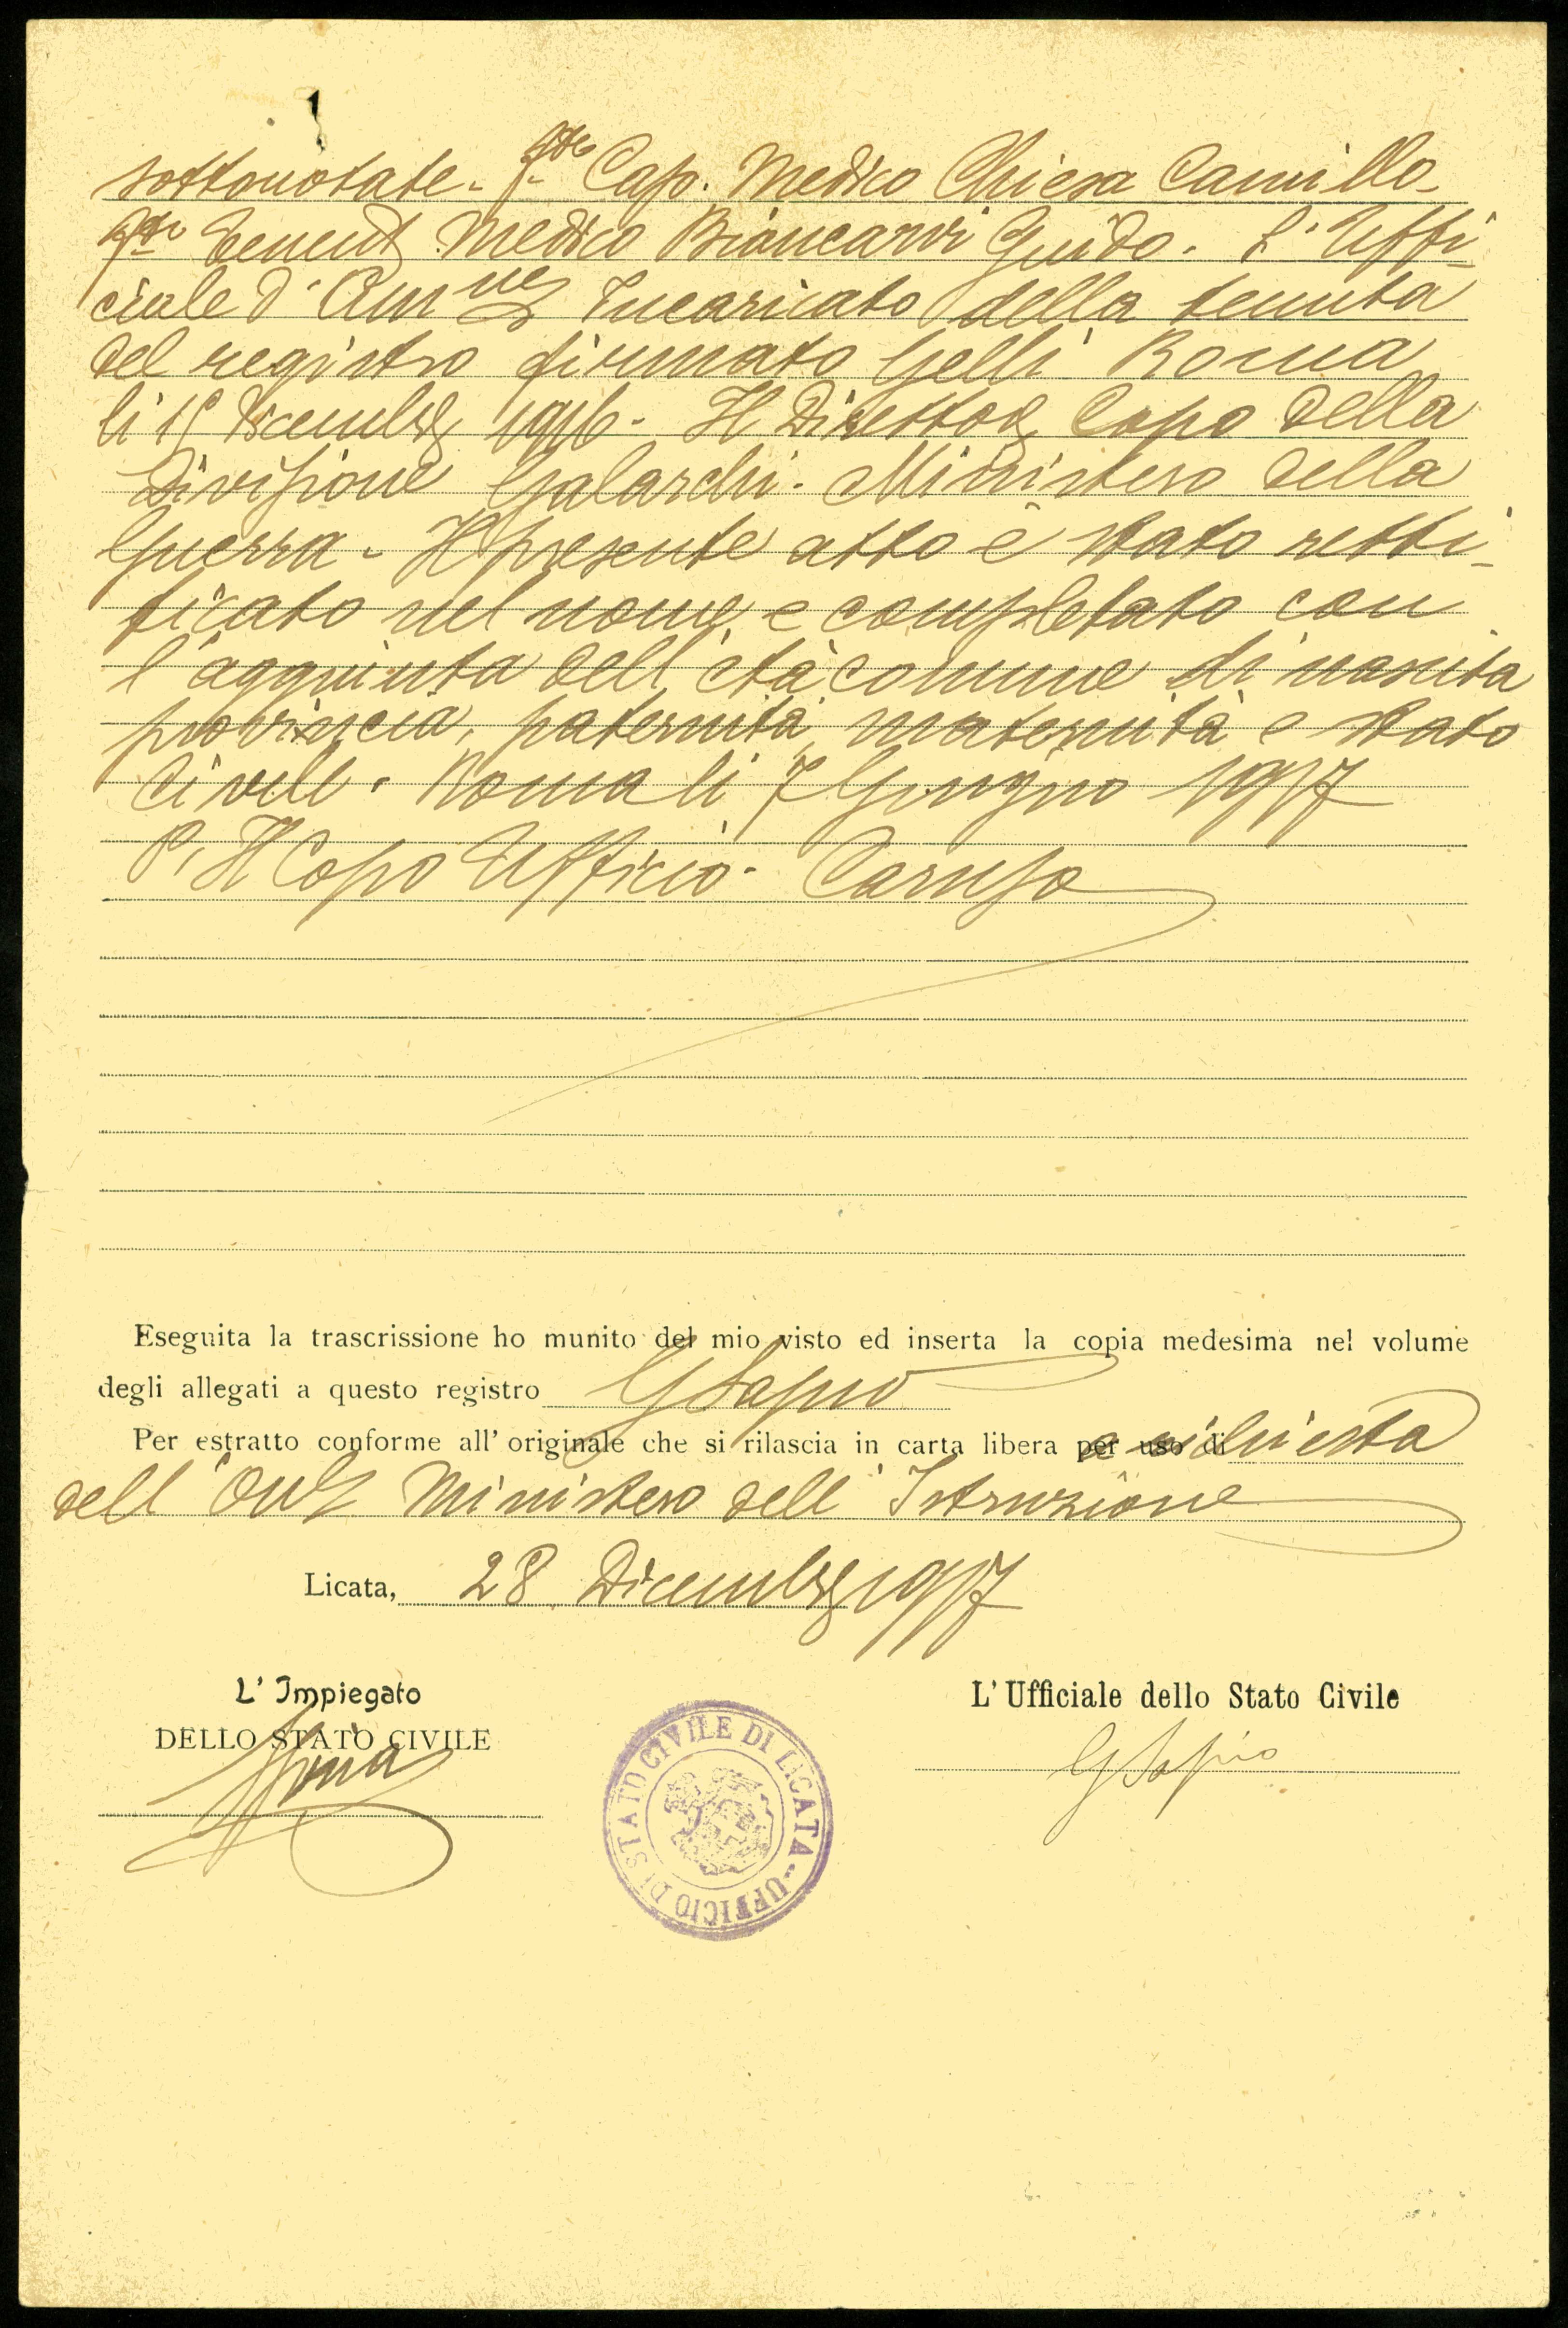 sottonotate. f.to Cap. Medico Chiesa Camillo
f.to Tenente Medico Biancardi Guido. L'Uffi-
ciale d'Amne Incaricato della tenuta
del registro firmato Gelli Roma
li 15 Dicembre 1916. Il Direttore Capo della
Divisione Galardi. Ministero della
Guerra. Il presente atto è stato retti-
ficato nel nome e completato con
l'aggiunta dell'età, comune di nascita
provincia, paternità, maternità e stato
civile. Roma li 7 Giugno 1917
P. Il Capo Ufficio. Caruso
Eseguita la trascrissione ho munito del mio visto ed inserta la copia medesima nel volume
degli allegati a questo registro G Sapio
Per estratto conforme all' originale che si rilascia in carta libera per uso di a richiesta
dell'On. Ministero dell'Istruzione
Licata, 28 Dicembre 1917
L' Impiegato
DELLO STATO CIVILE
L' Ufficiale dello Stato Civile
G Sapio
UFFICIO DI STATO CIVILE DI LICATA